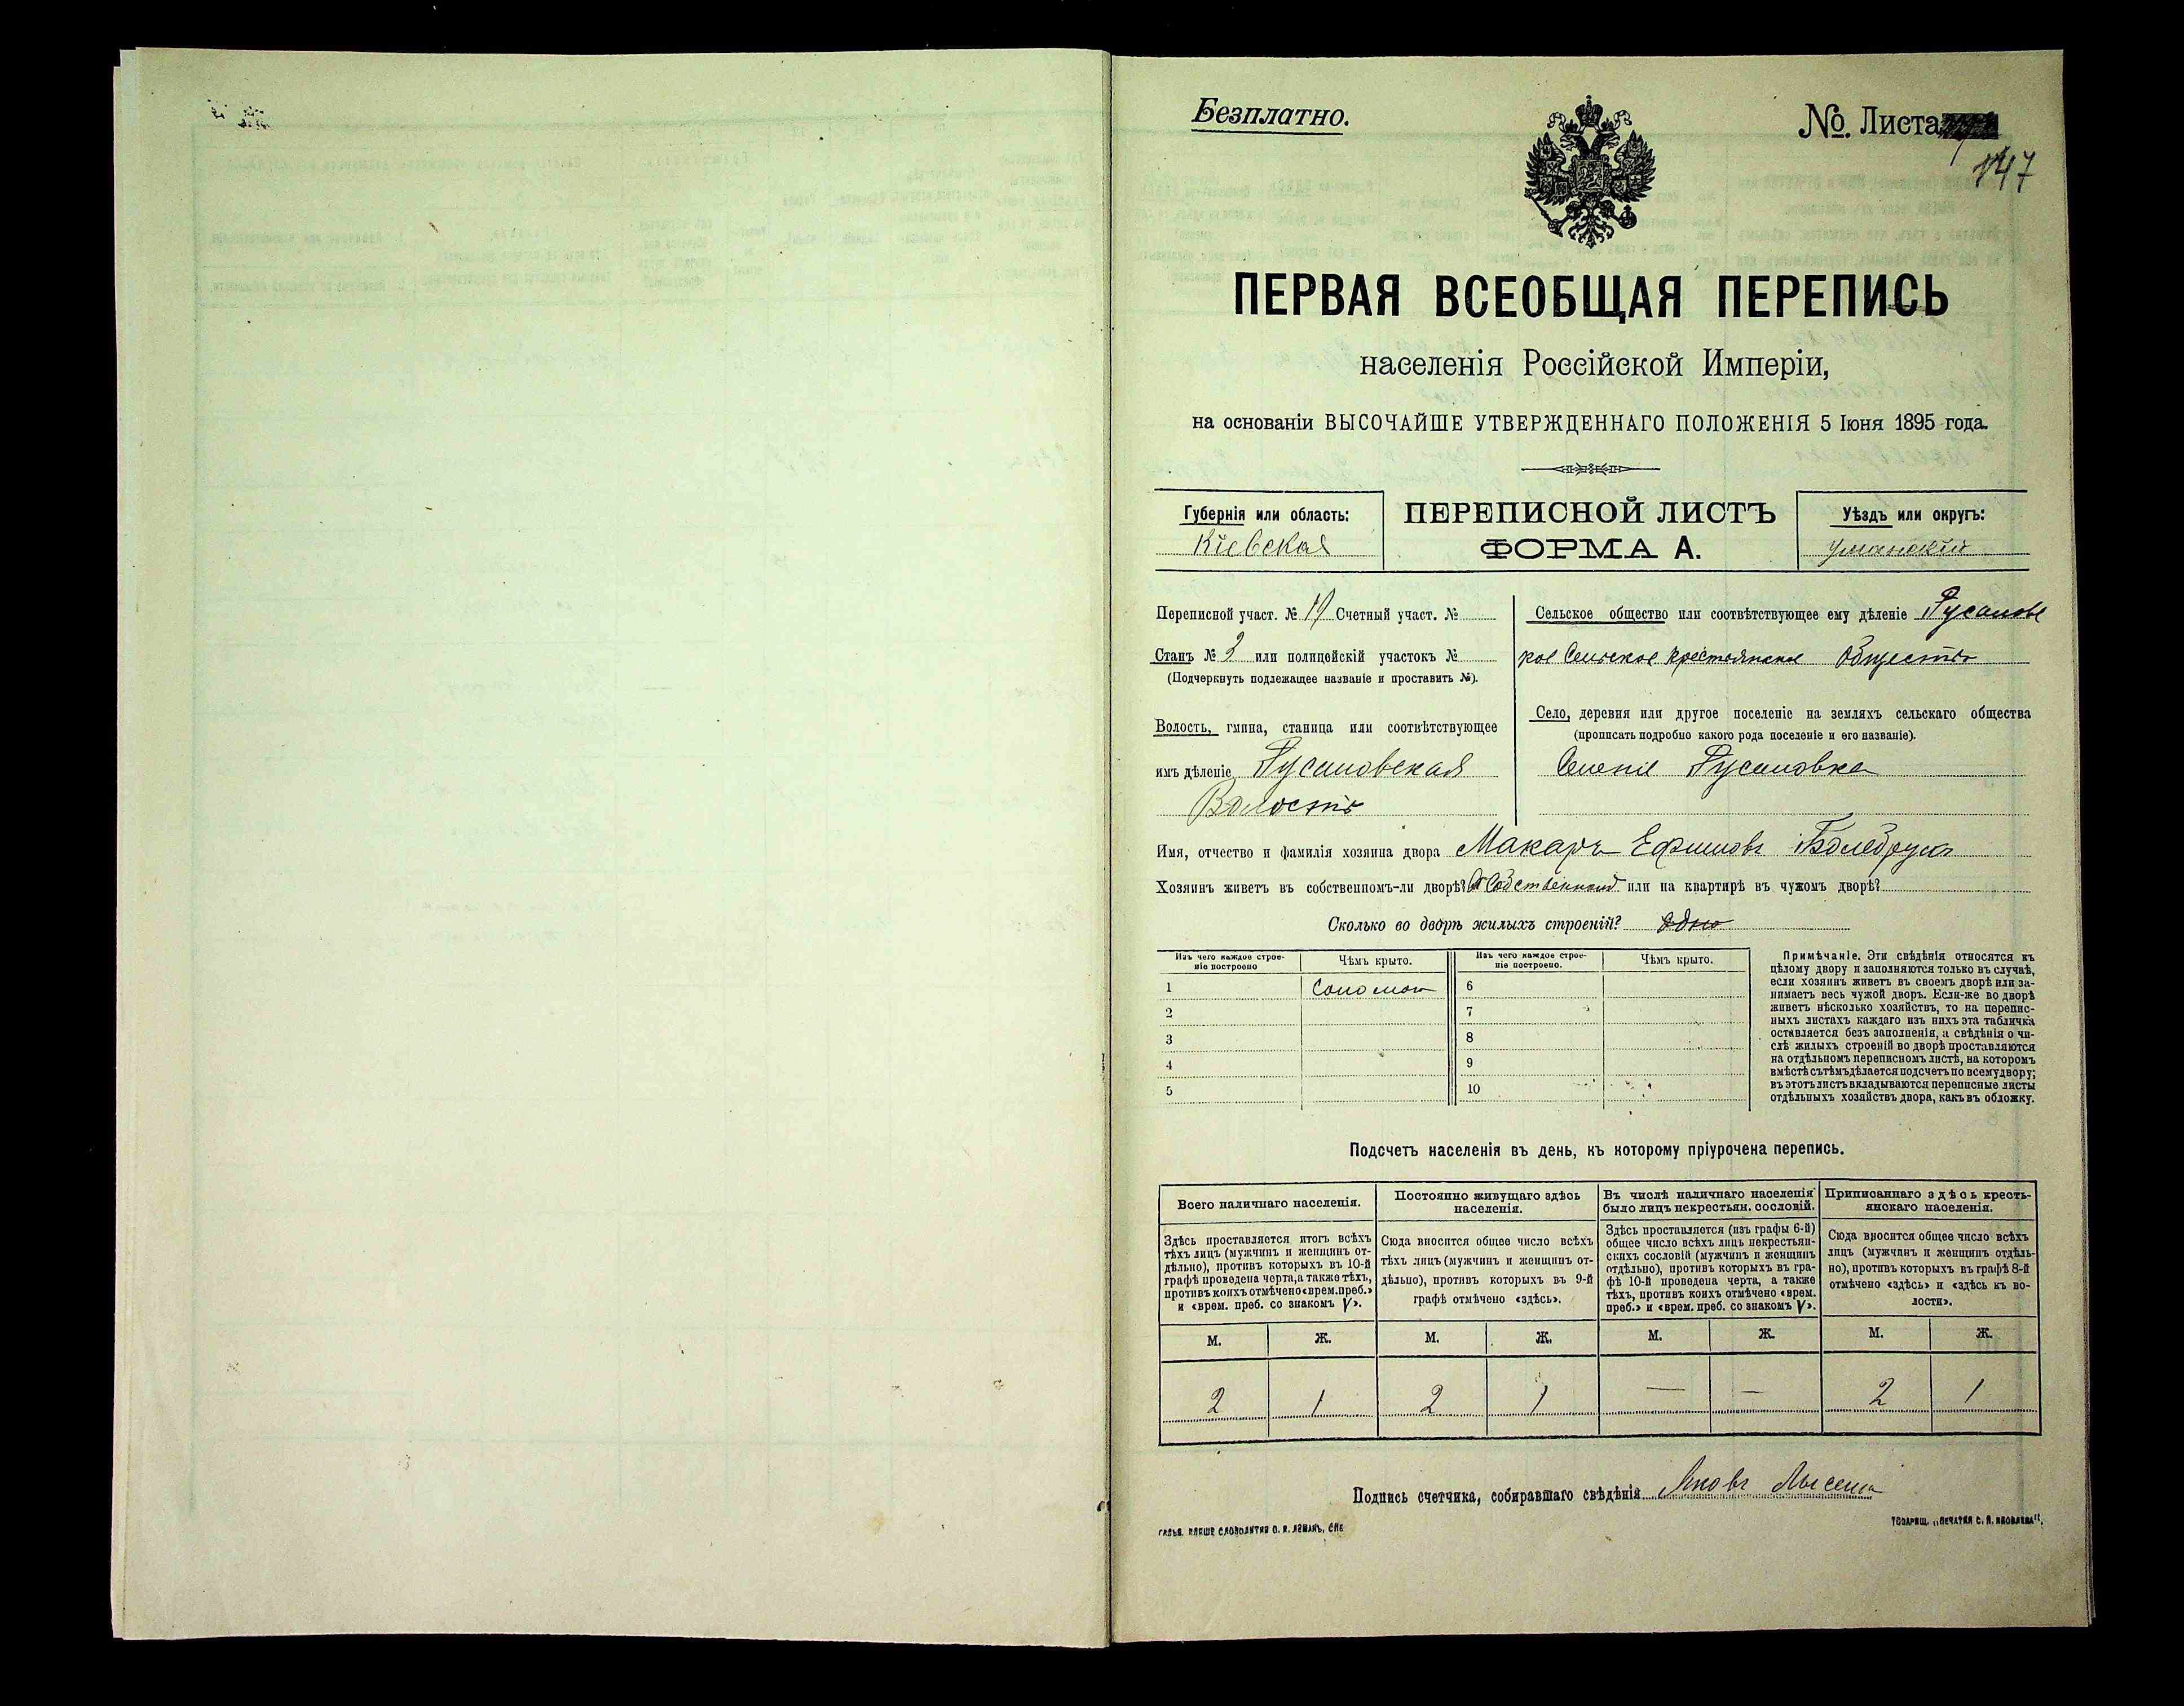 Безплатно.
№. Листа
147
ПЕРВАЯ ВСЕОБЩАЯ ПЕРЕПИСЬ
населенія Россійской Имперіи,
на основаніи ВЫСОЧАЙШЕ УТВЕРЖДЕННАГО ПОЛОЖЕНІЯ 5 Іюня 1895 года.
Губернія или область:
Кіевская
ПЕРЕПИСНОЙ ЛИСТЪ
ФОРМА А.
Уѣздъ или округъ:
Уманскій
Переписной участ. № 19 Счетный участ. №
Станъ № 2 или полицейскій участокъ №
(Подчеркнуть подлежащее названіе и проставить №).
Волость, гмина, станица или соотвѣтствующее
имъ дѣленіе Русаловская
Волость
Сельское общество или соотвѣтствующее ему дѣленіе Русаловс
кое Сельское крестьянское Общество
Село, деревня или другое поселеніе на земляхъ сельскаго общества
(прописать подробно какого рода поселеніе и его названіе).
Русаловка
Имя, отчество и фамилія хозяина двора Макаръ Ефимовъ
Хозяинъ живетъ въ собственномъ-ли дворѣ? Въ Собственномъ или на квартирѣ въ чужомъ дворѣ?
Сколько во дворѣ жилыхъ строеній? Одно
Изъ чего каждое строе-
ніе построено
Чѣмъ крыто.
Изъ чего каждое строе-
ніе построено.
Чѣмъ крыто.
1 Соломой 6
2 7
3 8
4 9
5 10
Примѣчаніе. Эти свѣдѣнія относятся къ
цѣлому двору и заполняются только въ случаѣ,
если хозяинъ живетъ въ своемъ дворѣ или за-
нимаетъ весь чужой дворъ. Если-же во дворѣ
живетъ нѣсколько хозяйствъ, то на перепис-
ныхъ листахъ каждаго изъ нихъ эта табличка
оставляется безъ заполненія, а свѣдѣнія о чи-
слѣ жилыхъ строеній во дворѣ проставляются
на отдѣльномъ переписномъ листѣ, на которомъ
вмѣстѣ съ тѣмъ дѣлается подсчетъ по всему двору;
въ этотъ листъ вкладываются переписные листы
отдѣльныхъ хозяйствъ двора, какъ въ обложку.
Подсчетъ населенія въ день, къ которому пріурочена перепись.
Всего наличнаго населенія.
Здѣсь проставляется итогъ всѣхъ
тѣхъ лицъ (мужчинъ и женщинъ от-
дѣльно), противъ которыхъ въ 10-й
графѣ проведена черта, а также тѣхъ,
противъ коихъ отмѣчено «врем. преб.»
и «врем. преб. со знакомъ V».
Постоянно живущаго здѣсь
населенія.
Сюда вносится общее число всѣхъ
тѣхъ лицъ (мужчинъ и женщинъ от-
дѣльно), противъ которыхъ въ 9-й
графѣ отмѣчено «здѣсь».
Въ числѣ наличнаго населенія
было лицъ некрестьян. сословій.
Здѣсь проставляется (изъ графы 6-й)
общее число всѣхъ лицъ некрестьян-
скихъ сословій (мужчинъ и женщинъ
отдѣльно), противъ которыхъ въ гра-
фѣ 10-й проведена черта, а также
тѣхъ, противъ коихъ отмѣчено «врем.
преб.» и «врем. преб. со знакомъ V».
Приписаннаго здѣсь кресть-
янскаго населенія.
Сюда вносится общее число всѣхъ
лицъ (мужчинъ и женщинъ отдѣль-
но), противъ которыхъ въ графѣ 8-й
отмѣчено «здѣсь» и «здѣсь къ во-
лости».
М. Ж. М. Ж. М. Ж. М. Ж.
2 1 2 1 — — 2 1
Подпись счетчика, собиравшаго свѣдѣнія Яковъ
ТОВАРИЩ. „ПЕЧАТНЯ С. П. ЯКОВЛЕВА“.